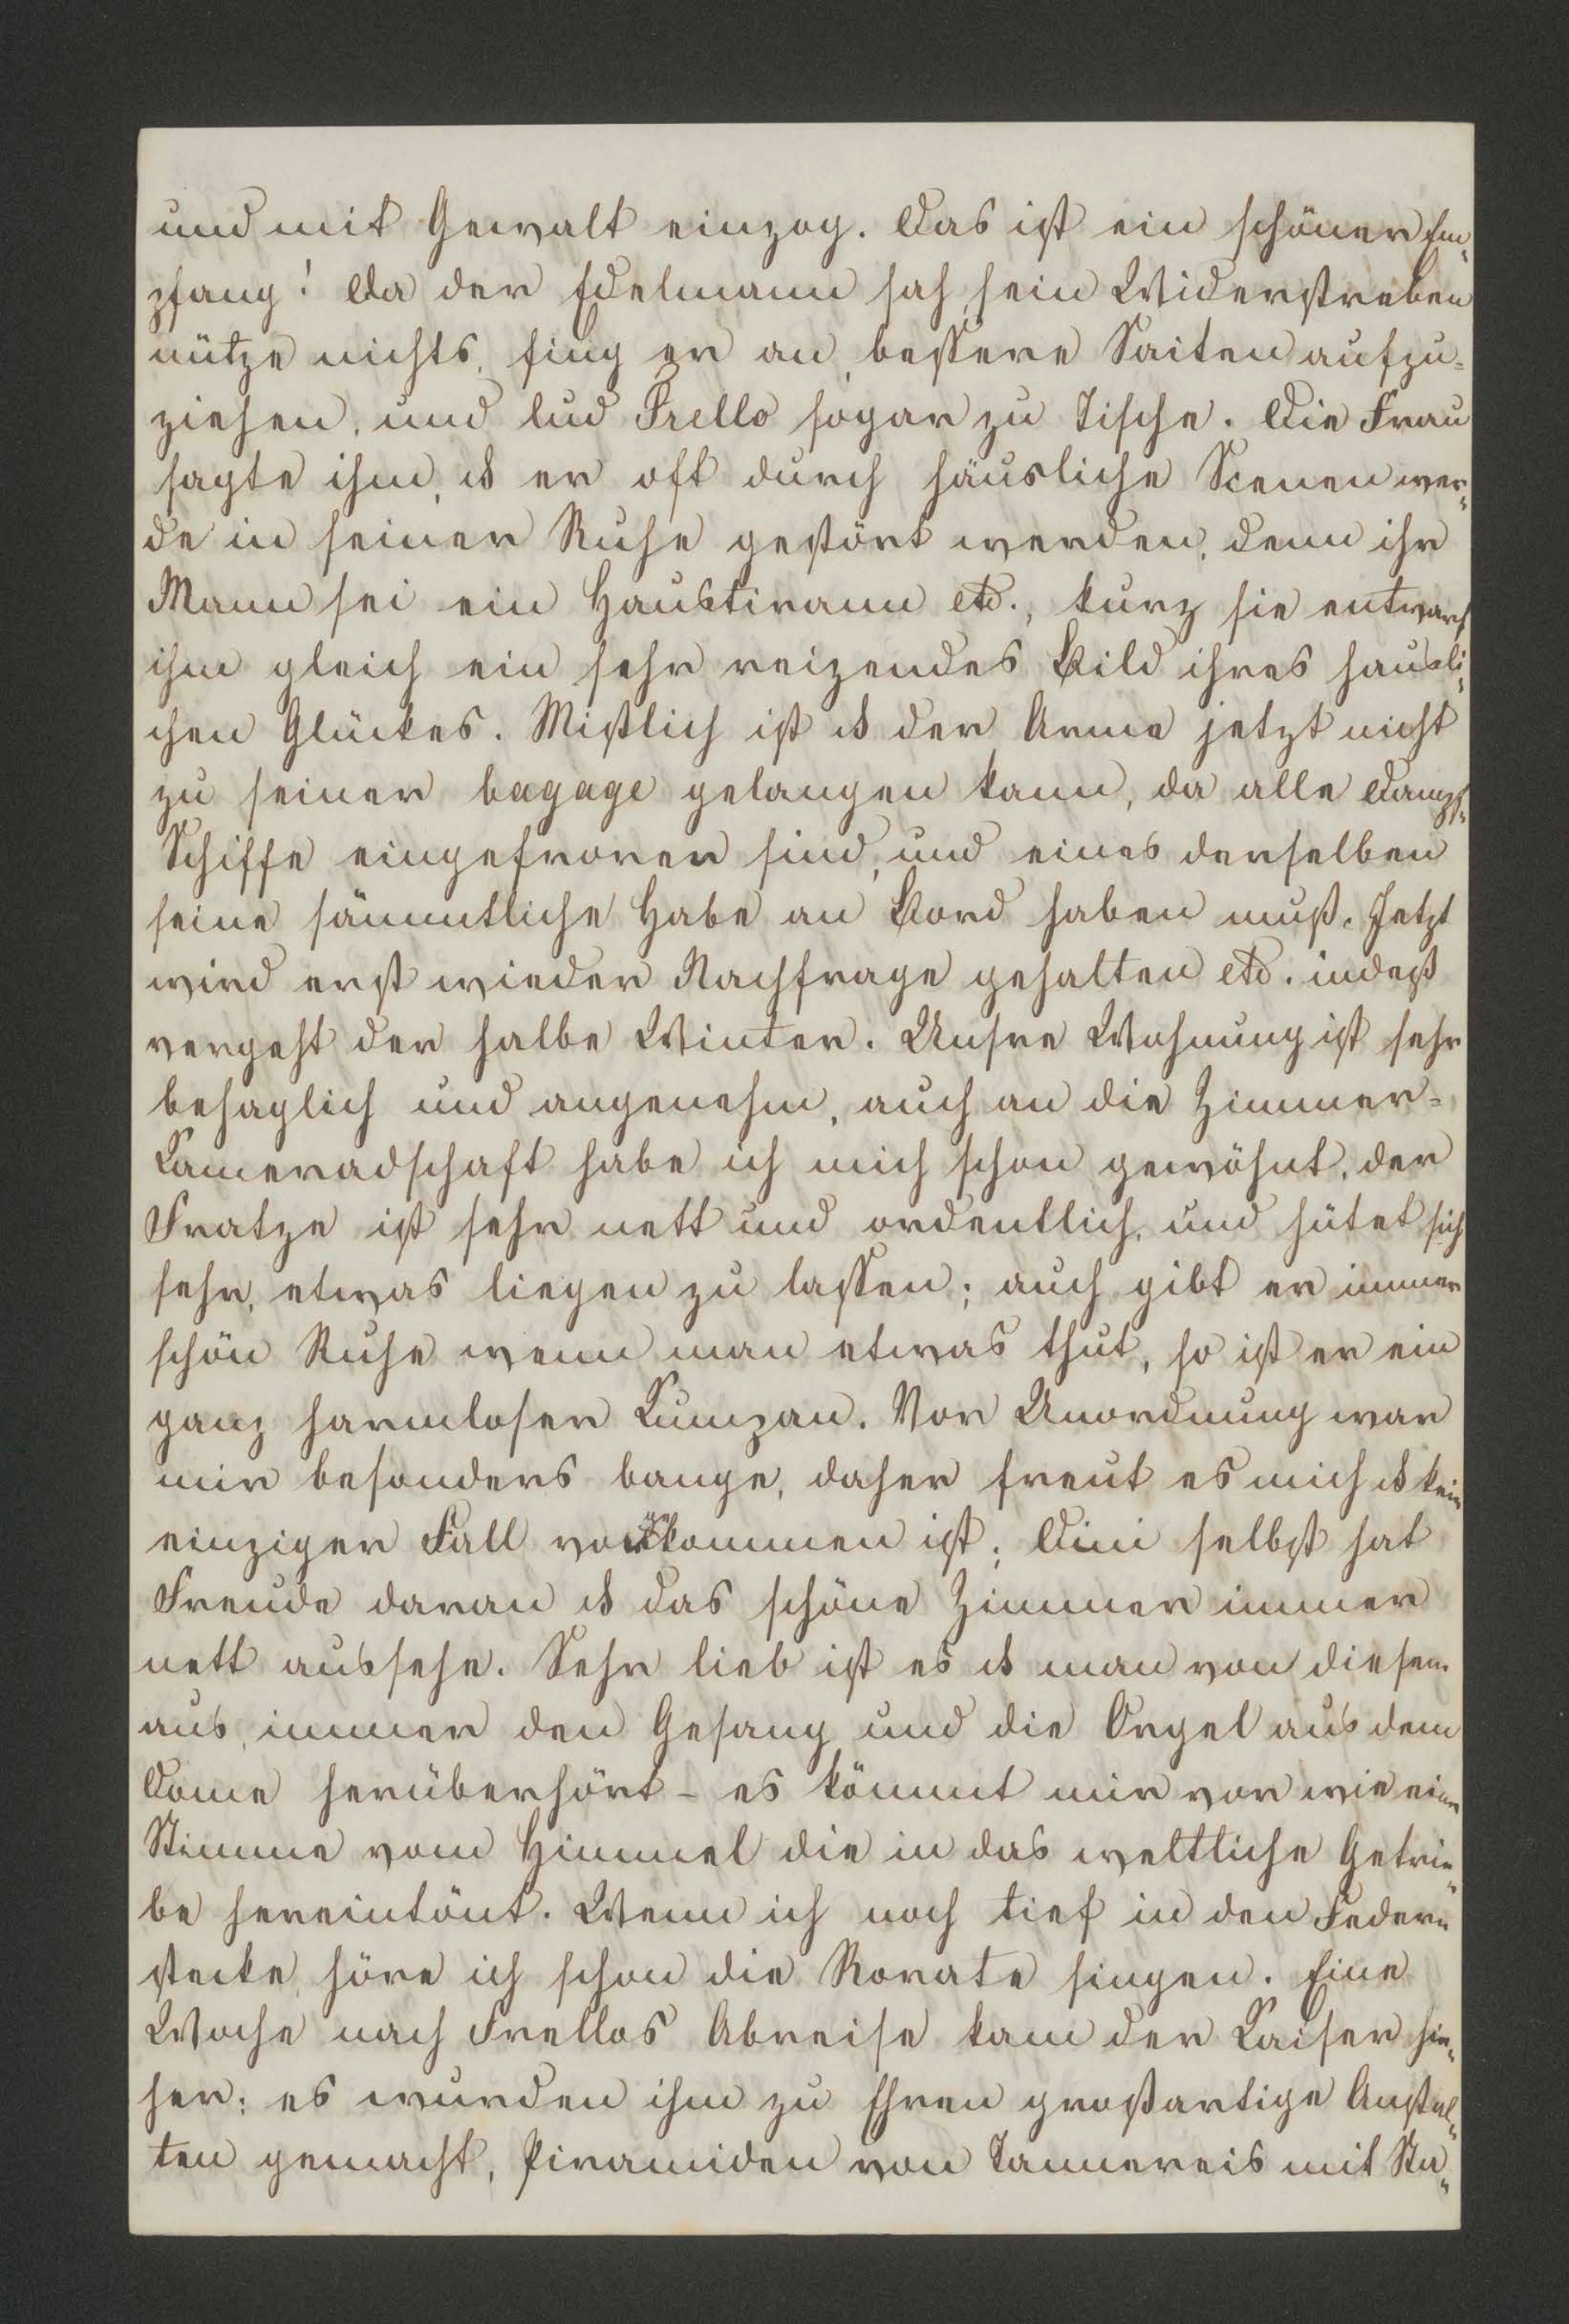 und mit Gewalt einzog. Das ist ein schöner Em„
pfang! Da der Edelmann sah, sein Widerstreben
nütze nichts, fing er an, bessere Saiten aufzu=
ziehen, und lud Frello sogar zu Tische. Die Frau
sagte ihm, ds er oft durch häusliche Scenen wer„
de in seiner Ruhe gestört werden, denn ihr
Mann sei ein Haustirann etc., kurz sie entwarf
ihm gleich ein sehr reizendes Bild ihres häusli„
chen Glückes. Mißlich ist ds der Arme jetzt nicht
zu seiner bagage gelangen kann, da alle Dampf„
Schiffe eingefroren sind, und eines derselben
seine sämmtliche Habe an Bord haben muß. Jetzt
wird erst wieder Nachfrage gehalten etc. indeß
vergeht der halbe Winter. Unsre Wohnung ist sehr
behaglich und angenehm, auch an die Zimmer=
Kameradschaft habe ich mich schon gewöhnt, der
Fratze ist sehr nett und ordentlich, und hütet sich
sehr, etwas liegen zu lassen; auch gibt er immer
schön Ruhe wenn man etwas thut, so ist er ein
ganz harmloser Kumpan. Vor Unordnung war
mir besonders bange, daher freut es mich ds kein
einziger Fall vorkommen ist; Dini selbst hat
Freude daran ds das schöne Zimmer immer
nett aussehe. Sehr lieb ist es ds man von diesem
aus, immer den Gesang und die Orgel aus dem
Dome herüberhört – es kömmt mir vor wie eine
Stimme vom Himmel die in das weltliche Getrie„
be hereintönt. Wenn ich noch tief in den Federn
stecke, höre ich schon die Rorate singen. Eine
Woche nach Frellos Abreise kam der Kaiser hie„
her; es wurden ihm zu Ehren großartige Anstal„
ten gemacht, Piramiden von Tannereis mit Sta„